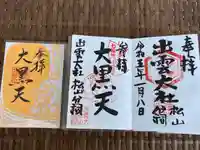 奉拝
出雲大社
松山分祠
令和三年一月八日
参拝
大黒天
出雲大社
松山分祠
参拝
大黒天